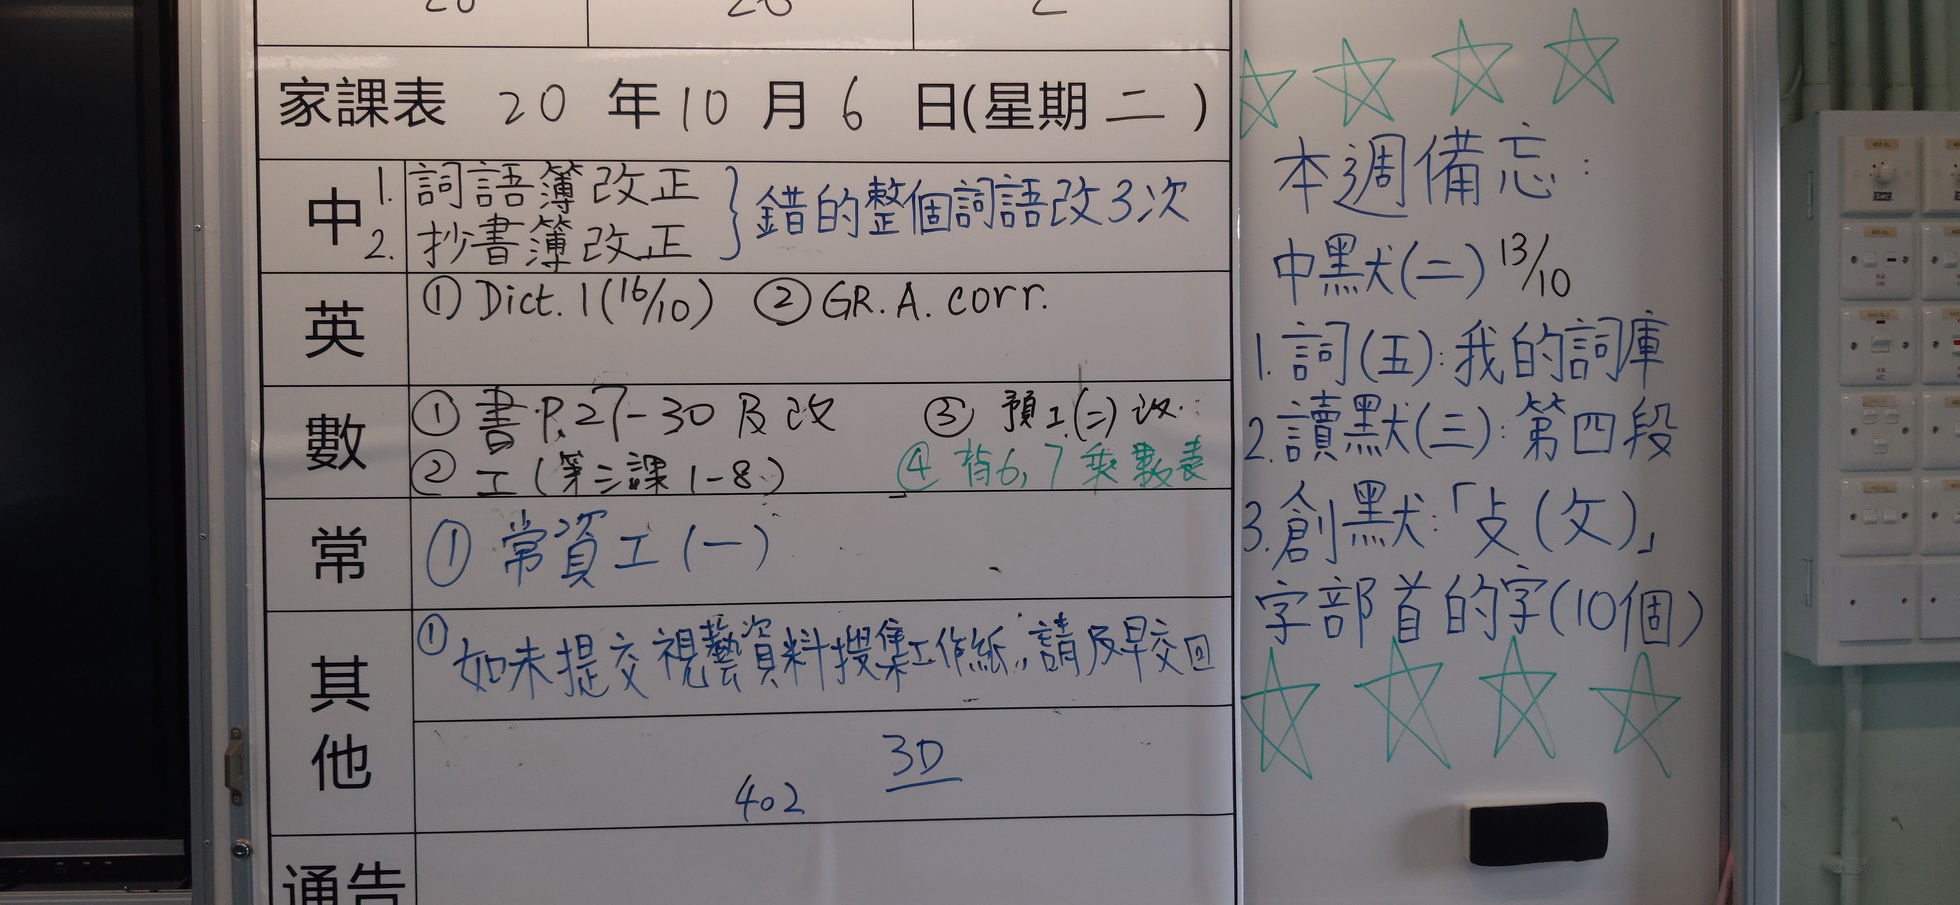 家課表 20 年 10 月 6 日(星期 二 )
中
1. 詞語簿改正
2. 抄書簿改正
} 錯的整個詞語改3次
英
① Dict. 1 (16/10) ② GR. A. corr.
數
① 書 P.27-30 及改 ③ 預工(二)改
② 工(第三課 1-8) ④ 背6,7乘數表
常
① 常資工(一)
其他
① 如未提交視藝資料搜集工作紙,請及早交回
3D
402
通告
本週備忘:
中默(二) 13/10
1. 詞(五):我的詞庫
2. 讀默(三):第四段
3. 創默:「攴(攵)」
字部首的字(10個)